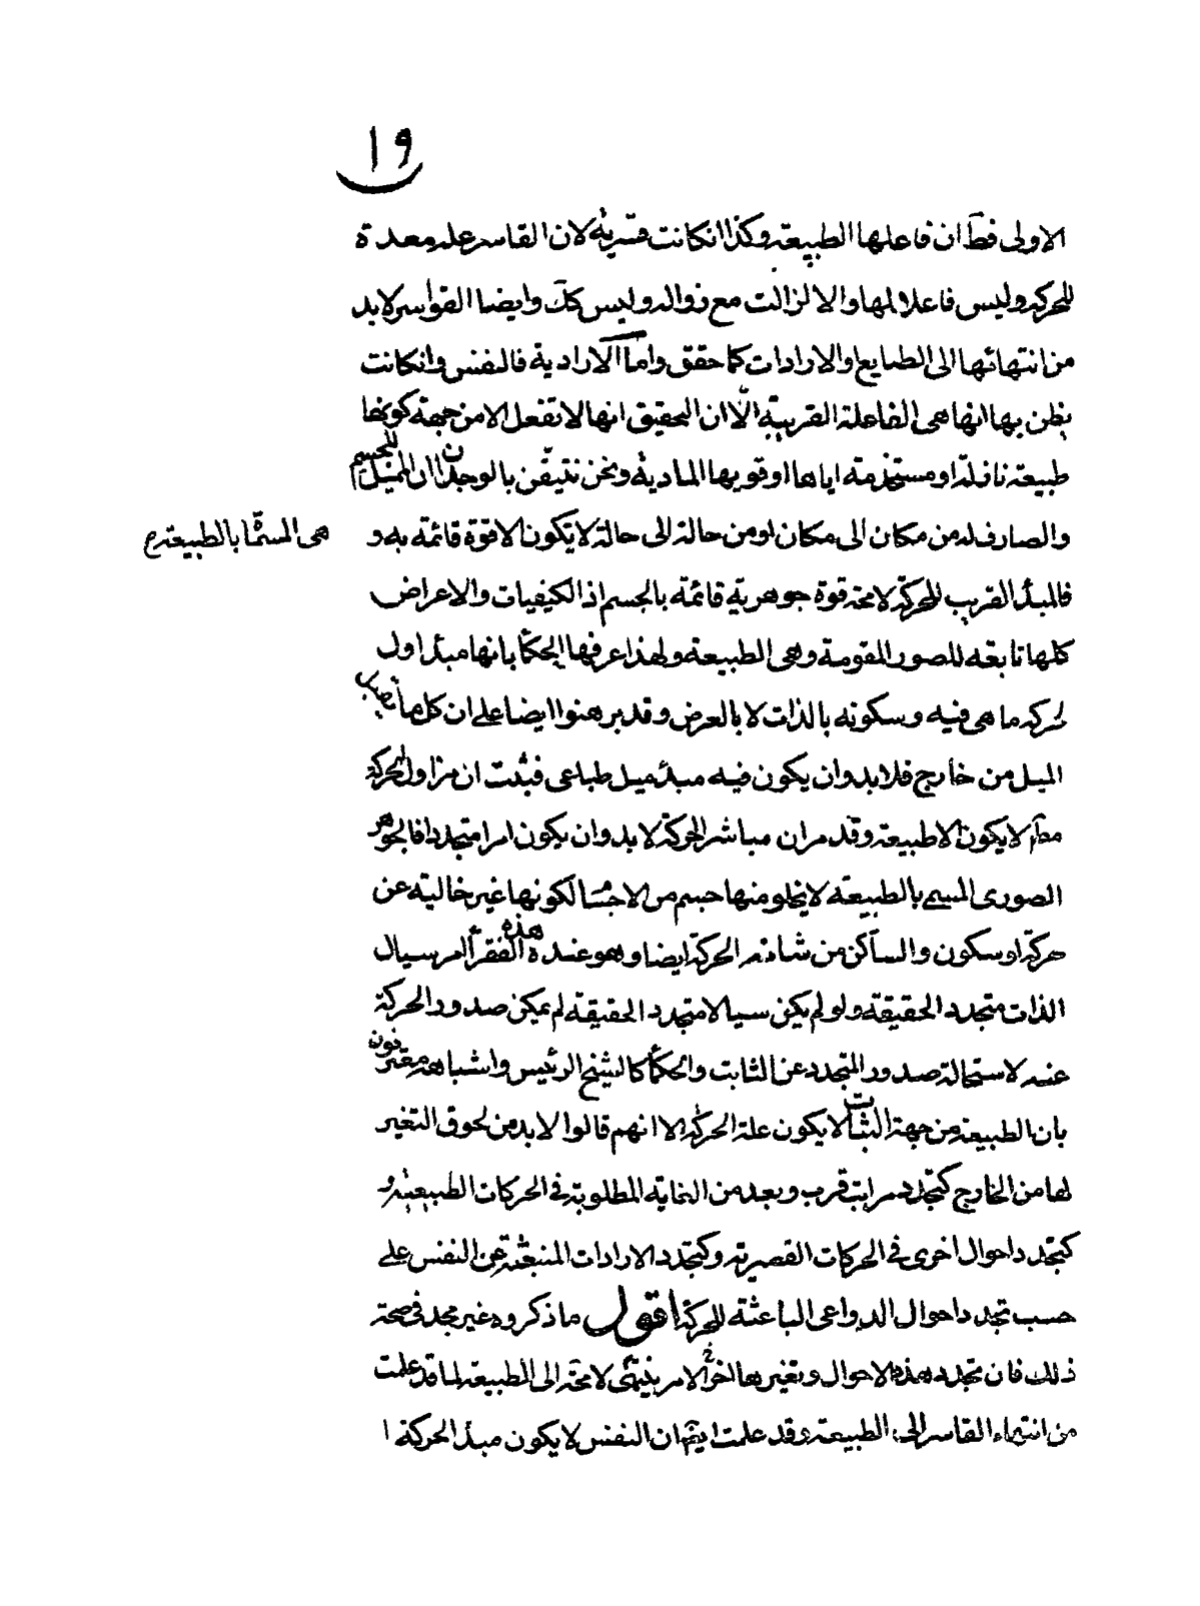 ١٩
الاولى فظ ان فاعلها الطبيعة وكذا انكانت قسرية لان القاسر علة معدة
للحركة وليس فاعلا لها والا لزالت مع زواله وليس كك وايضا القواسر لابد
من انتهائها الى الطبايع او الارادات كما حقق واما الارادية فالنفس وانكانت
يظن بها انها هى الفاعلة القريبة الا ان التحقيق انها لا تفعل الا من جهة كونها
طبيعة نافلة او مستخدمة اياها او قويها المادية ونحن نتيقن بالوجدان ان المميل للجسم
والصارف له من مكان الى مكان او من حالة الى حالة لا يكون الا قوة قائمة به و
هى المسماة بالطبيعة
فالمبدء القريب للحركة لا محة قوة جوهرية قائمة بالجسم اذ الكيفيات والاعراض
كلها تابعة للصور المقومة وهى الطبيعة ولهذا عرفها الحكماء بانها مبدء اول
لحركة ما هى فيه وسكونه بالذات لا بالعرض وقد برهنوا ايضا على ان كل ما يقبل
الميل من خارج فلا بد وان يكون فيه مبدء ميل طباعى فثبت ان مزاول الحركة
مطم لا يكون الا طبيعة وقد مر ان مباشر الحركة لا بد وان يكون امرا متجددا فالجوهر
الصورى المسمى بالطبيعة لا يخلو منها جسم من الاجسام لكونها غير خالية عن
حركة او سكون والساكن من شانه الحركة ايضا وهو عند هذه الفقراء امر سيال
الذات متجدد الحقيقة ولو لم يكن سيالا متجدد الحقيقة لم يمكن صدور الحركة
عنه لاستحالة صدور المتجدد عن الثابت والحكماء كالشيخ الرئيس واشباهه معترفون
بان الطبيعة من جهة الثبات لا يكون علة الحركة الا انهم قالوا لا بد من لحوق التغير
لها من الخارج كتجدد مراتب قرب وبعد من الغاية المطلوبة فى الحركات الطبيعية و
كتجدد احوال اخرى فى الحركات القصرية وكتجدد الارادات المنبعثة عن النفس على
حسب تجدد احوال الدواعى الباعثة للحركة اقول ما ذكروه غير مجد فى صحة
ذلك فان تجدد هذه الاحوال وتغيرها اخر الامر ينتهى لا محة الى الطبيعة لما قد علمت
من انتهاء القاسر الى الطبيعة وقد علمت ايضا ان النفس لا يكون مبدء الحركة ا